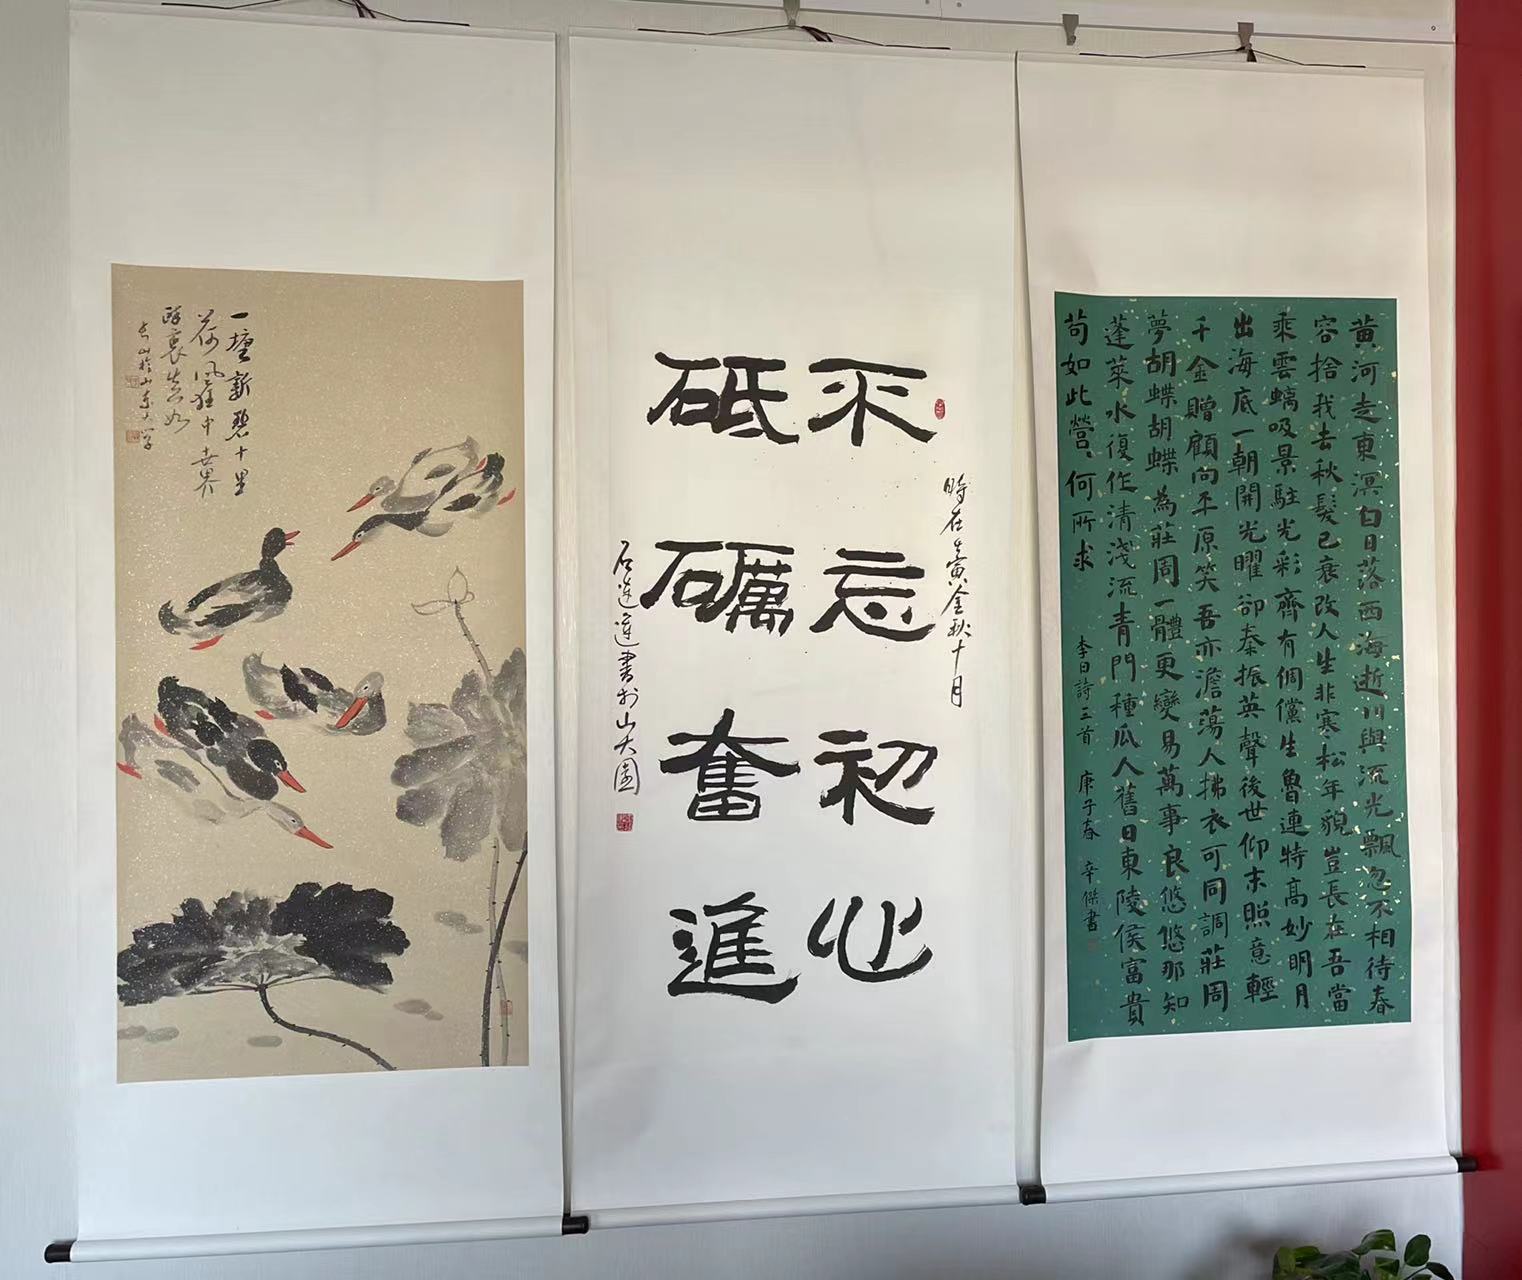 一壇新碧十里
荷風狂中世界
醉裏
不忘初心
砥礪奮進
時在黃金秋十月
石蓮蓮書於山大園
黃河走東溟白日落西海逝川與流光飄忽不相待春
容捨我去秋髮已衰改人生非寒松年貌豈長在吾當
乘雲螭吸景駐光彩齊有倜儻生魯連特高妙明月
出海底一朝開光曜卻秦振英聲後世仰末照意輕
千金贈顧向平原笑吾亦澹蕩人拂衣可同調莊周
夢胡蝶胡蝶為莊周一體更變易萬事良悠悠那知
蓬萊水復作清淺流青門種瓜人舊日東陵侯富貴
苟如此營、何所求
李白詩三首 庚子春 辛傑書